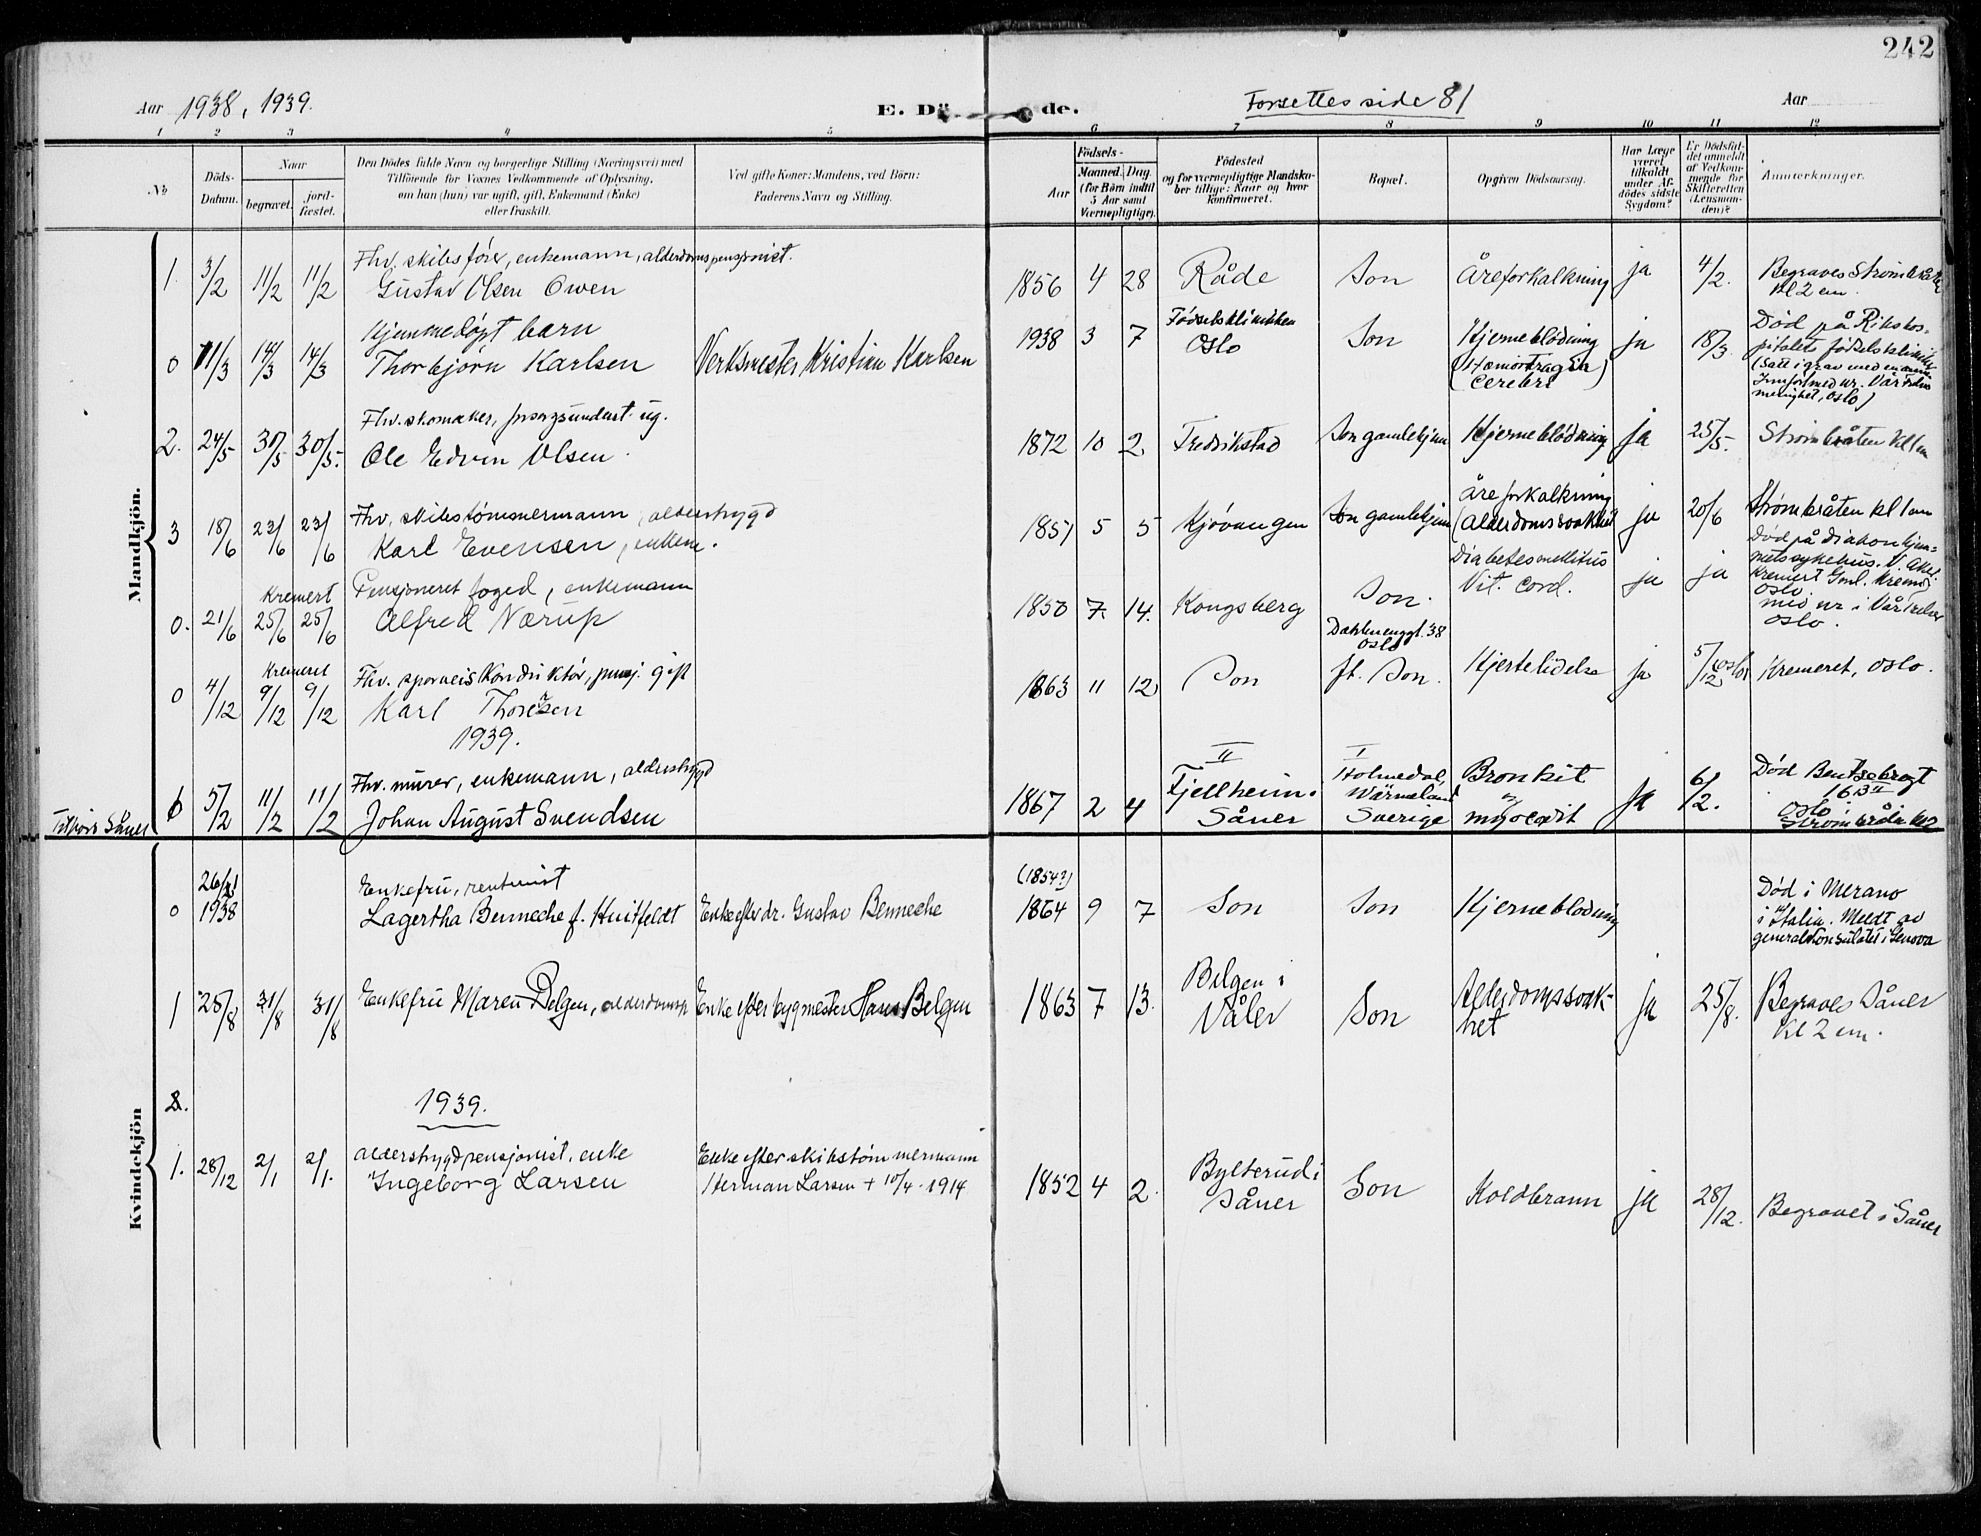 242
Aar 1938, 1939.
E. Dö de.
Forsettes side 81
Aar
1 2 3 4 5 6 7 8 9 10 11 12
No
Döds-Datum.
Naar
begravet.
jord-fæstet.
Den Dödes fulde Navn og borgerlige Stilling (Næringsvei) med
Tilföiende for Voxnes Vedkommende af Oplysning,
om han (hun) var ugift, gift, Enkemand (Enke)
eller fraskilt.
Ved gifte Koner: Mandens, ved Börn:
Faderens Navn og Stilling.
Födsels-
Aar
Maaned. Dag.
(for Börn indtil
5 Aar samt
Værnepligtige).
Födested
og for værnepligtige Mandska-
ber tillige: Naar og hvor
konfirmeret.
Bopæl.
Opgiven Dödsaarsag.
Har Læge
været
tilkaldt
under Af-
dödes sidste
Sygdom?
Er Dödsfal-
det anmeldt
af Vedkom-
mende for
Skifteretten
(Lensman-
den)?
Anmærkninger.
Mandkjön.
Fhv. skibsfører, enkemann, alderdomspensjonist.
1. 3/2 11/2 11/2 Gustav Olsen Owen 1856 4 28 Råde Son Åreforkalkning ja 4/2. Begraves Strømbråten
Kl 2 em.
Hjemmedøpt barn
0 11/3 14/3 14/3 Thorbjørn Karlsen Verksmester Kristian Karlsen 1938 3 7 Fødselsklinikken
Oslo Son Hjerneblödning
(Hæmorragia
Cerebri) ja 18/3 Død på Rikshos-
pitalets fødselsklinikk
(Satt i grav med en annen
Innført med nr. Vår Frelsers
menighet, Oslo)
Fhv. skomaker, forsorgsunderst. ug.
2. 24/5 30/5 30/5. Ole Edvin Olsen 1872 10 2 Fredrikstad Son gamlehjem Hjerneblödning ja 25/5. Strømbråten kl 1 em
Fhv. skibstømmermann, alderstrygd
3 18/6 23/6 23/6 Karl Evensen, enkem. 1857 5 5 Kjøvangen Son gamlehjem Åreforkalkning
(Alderdomssvakhet ja 20/6 Strømbråten kl 1 em
Kremert Pensjoneret foged, enkemann
0. 21/6 25/6 25/6 Alfred Nærup 1850 7 14. Kongsberg Son. Diabetes mellitus
Vit. cord. ja ja Død på Diakonhjem-
mets sykehus. V. Aker
Kremert Gml. Krem.
Oslo.
med nr. i Vår Frelser
Oslo.
Kremeret Fhv. sporveis Konduktør, pensj. gift
0 4/12 9/12 9/12 Karl Thoresen 1863 11 12 Son Dahlenenggt. 38
Oslo
ft. Son. Hjertelidelse ja 5/12 Oslo Kremeret, Oslo.
1939.
Fhv. murer, enkemann, alderstrygd
Tilhører Såner 6 5/2 11/2 11/2 Johan August Svendsen 1867 2 4 II
Fjellheim i
Såner I
Holmedal,
Wärmeland
Sverige Bronkit
og
myocardit ja 6/2. Død Bentsebrogt
16B II
Oslo
Strømbråten kl 2
Kvindekjön
0 26/11
1938 Enkefru, rentenist
Lagertha Benneche f. Huitfeldt Enke efter dr. Gustav Benneche (1854?)
1864 9 7 Son Son Hjerneblødning Død i Merano
i Italia. Meldt av
generalkonsulatet i Genova
1 25/8 31/8 31/8 Enkefru Maren Belgen, alderdomsp. Enke efter bygmester Hans Belgen 1863 7 13. Belgen i
Våler Son Alderdomssvak-
het ja 25/8. Begraves Såner
Kl 2 em.
2. 1939.
1. 28/12 2/1 2/1. Alderstrygdpensjonist, enke
Ingeborg Larsen Enke efter skibstømmermann
Herman Larsen + 10/4. 1914 1852 4 2. Bylterud i
Såner Son Koldbrann ja 28/12. Begravet i Såner